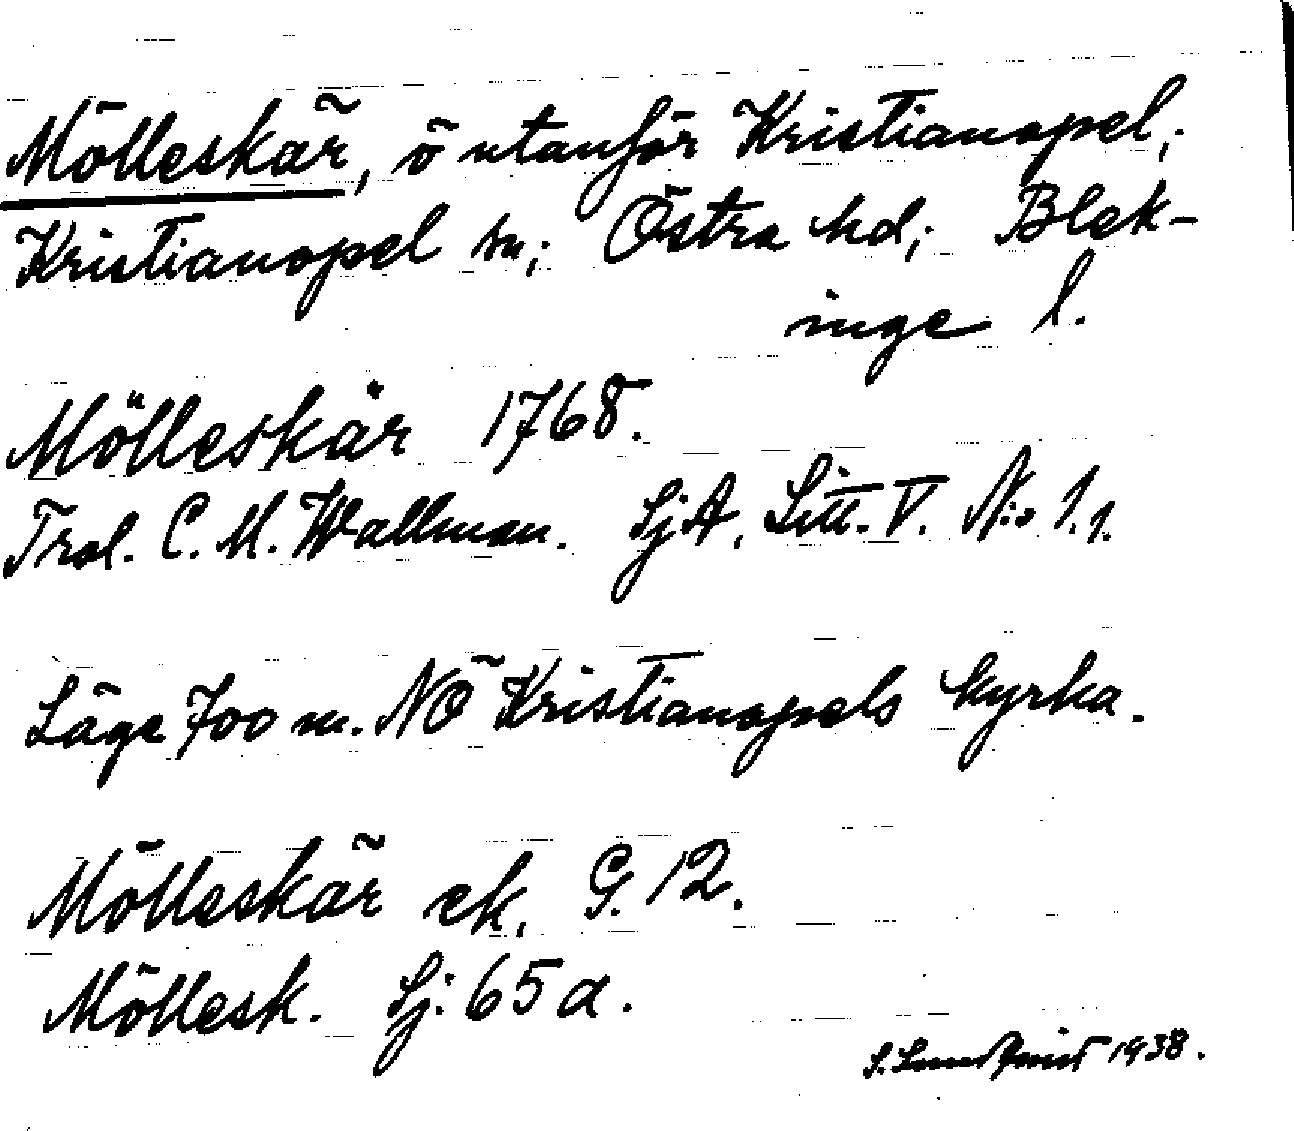 Mölleskär, ö utanför Kristianopel;
Kristianopel sn; Östra hd; Blek-
inge l.
Mölleskär 1768.
Trol. C. M. Wallman. SjA, Litt. V. N:o 1.1.
Läge 700 m. NÖ Kristianopels kyrka.
Mölleskär ek. G. 12.
Möllesk. Sj: 65 a.
S. Lundqvist 1938.